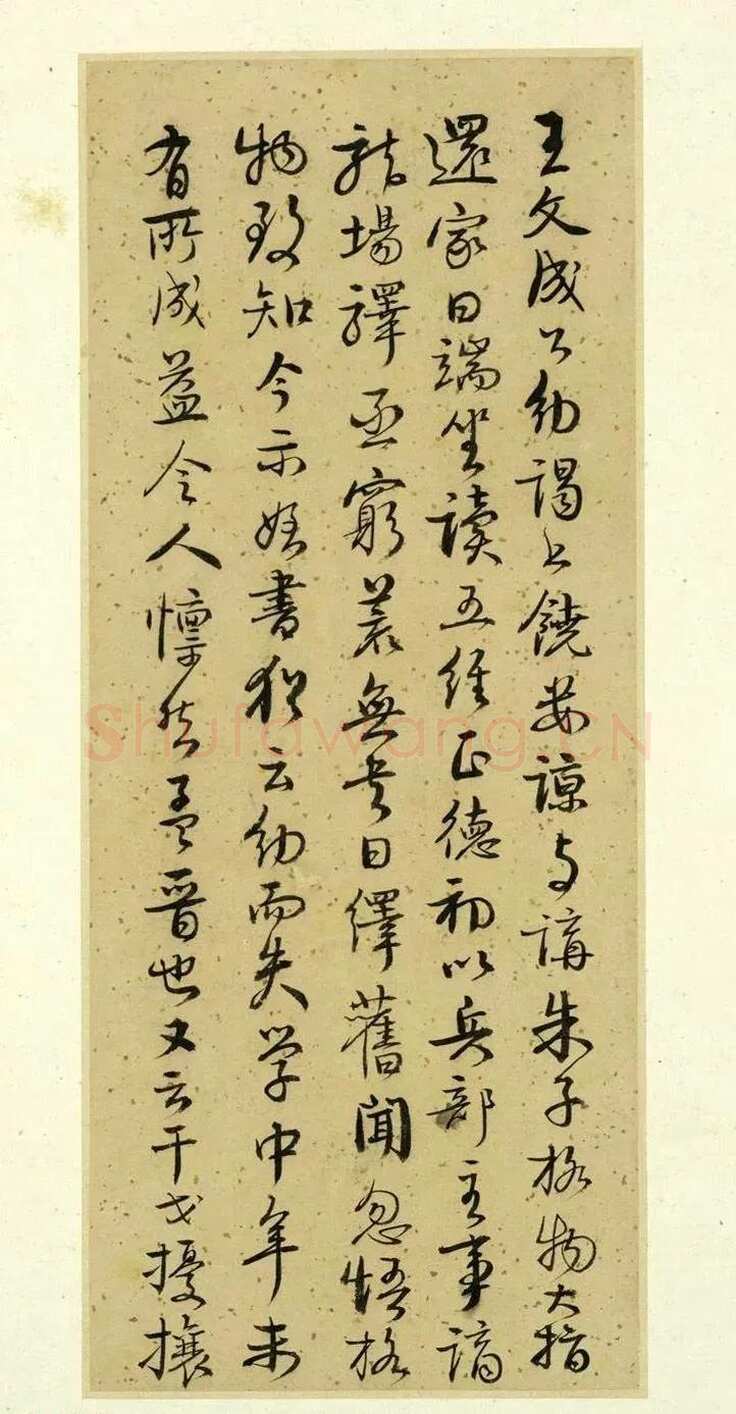 王文成公幼謁上饒婁諒与講朱子格物大指
還家日端坐讀五經正德初以兵部主事謫
龍場驛丞窮荒無書日繹舊聞忽悟格
物致知今示姪書猶云幼而失学中年未
有所成益令人懔然孟晉也又云干戈擾攘
Shufawang.CN